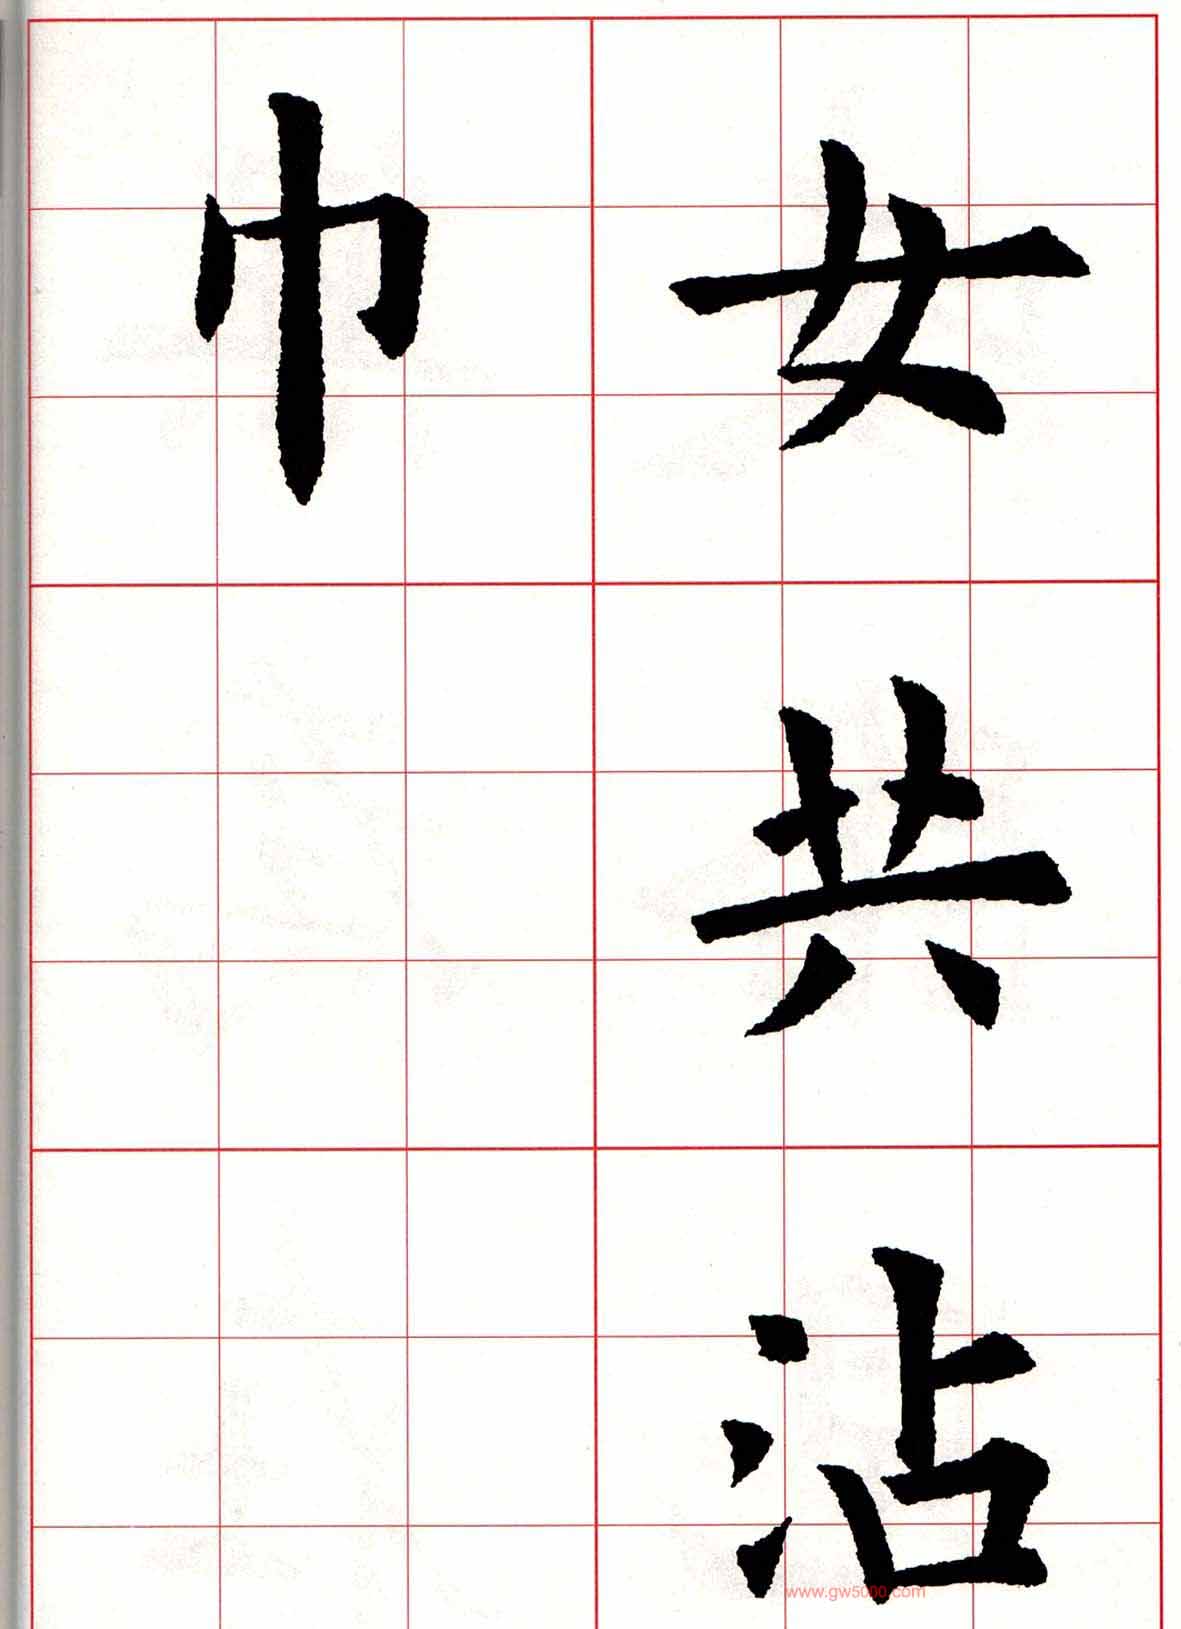 女共沾
巾
www.gw5000.com